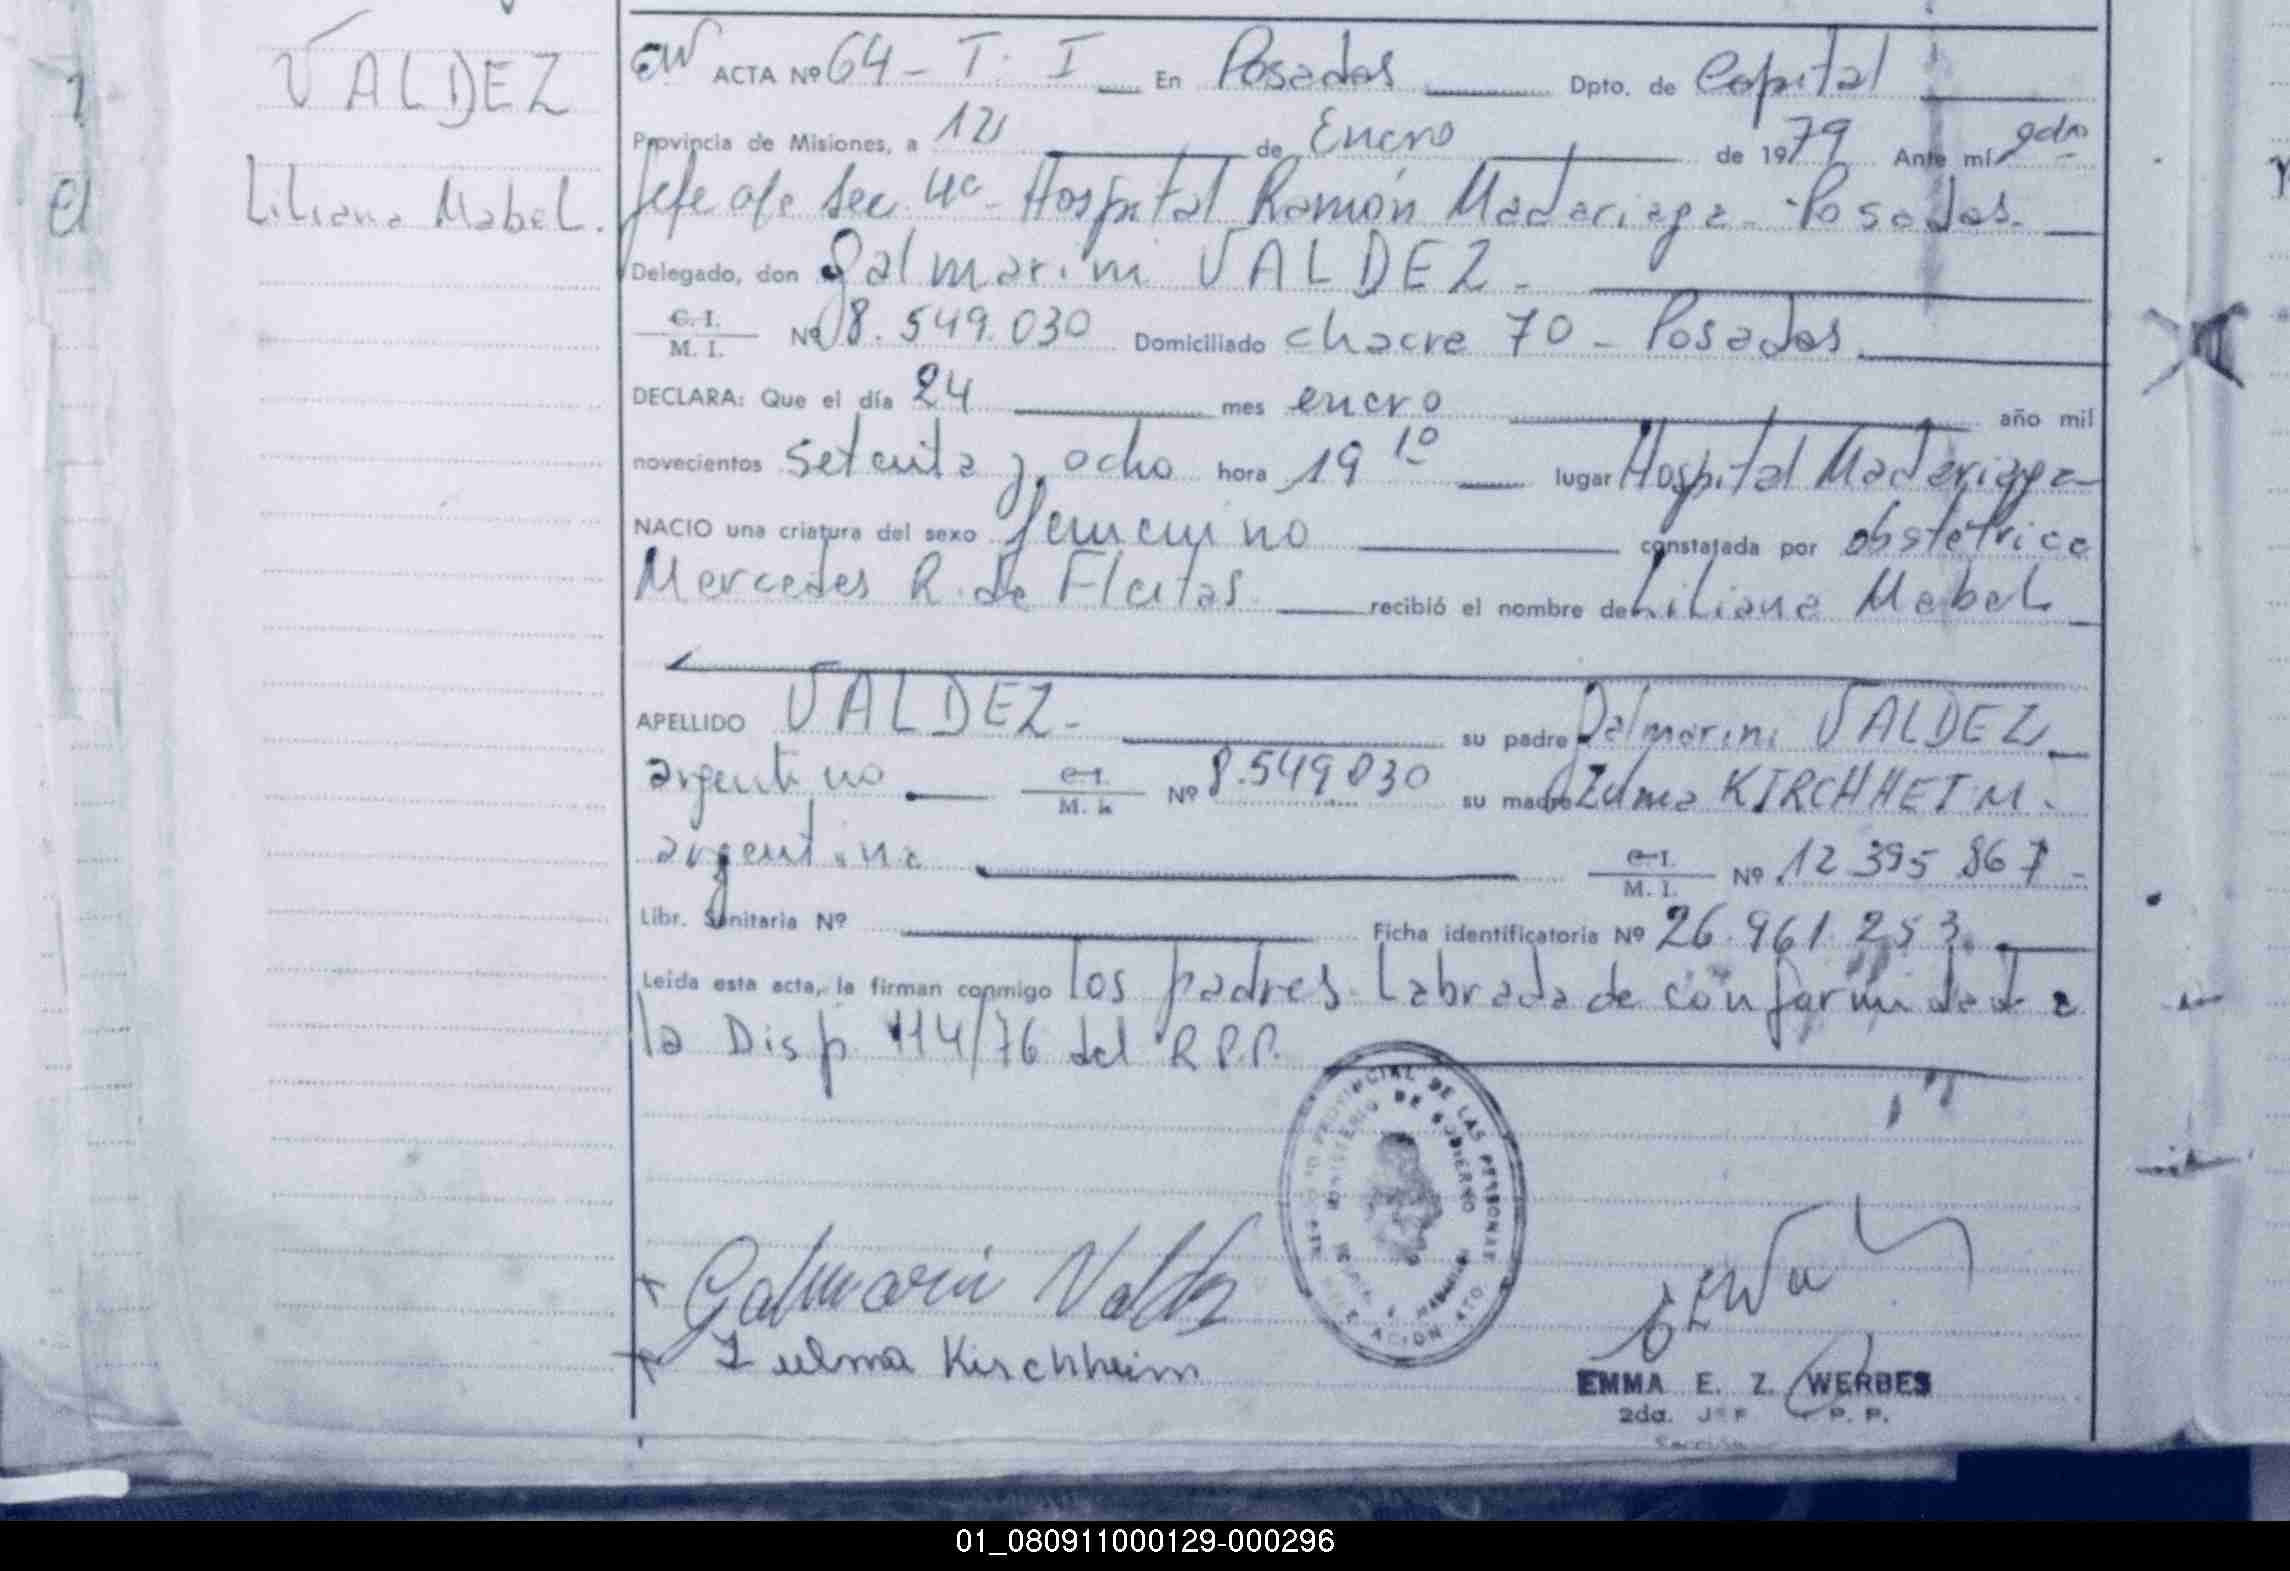 VALDEZ
Liliana Mabel.
ACTA Nº 64 - T. I En Posadas Dpto. de Capital
Provincia de Misiones, a 12 de Enero de 1979 Ante mí 2da
Jefe de Sec 4ª - Hospital Ramón Madariaga - Posadas.
Delegado, don Galmarini VALDEZ -
C. I. / M. I. Nº 8.549.030 Domiciliado chacra 70 - Posadas.
DECLARA: Que el día 24 mes enero año mil
novecientos setenta y ocho hora 19 10 lugar Hospital Madariaga
NACIO una criatura del sexo femenino constatada por obstétrica
Mercedes R. de Fleitas recibió el nombre de Liliana Mabel
APELLIDO VALDEZ - su padre Galmarini VALDEZ
argentino C. I. / M. I. Nº 8.549.030 su madre Zulma KIRCHHEIM.
argentina C. I. / M. I. Nº 12 395 867 -
Libr. Sanitaria Nº Ficha identificatoria Nº 26.961.253.
Leída esta acta, la firman conmigo los padres. Labrada de conformidad a
la Disp. 114/76 del R.P.P.
PROVINCIAL DE LAS PERSONAS
MINISTERIO DE GOBIERNO
Galmarini Valdez
Zulma Kirchheim
EMMA E. Z. WERBES
2da. Jef P. P.
Sección
01_080911000129-000296